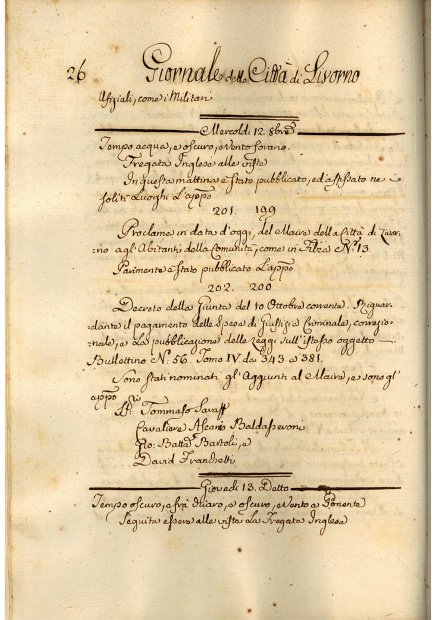 26 Giornale della Città di Livorno
Ufiziali, come i Militari
Mercoldi 12. 8bre
Tempo acqua, e oscuro, e Vento forano.
Fregata Inglese alle viste
In questa mattina è stato pubblicato, ed affissato ne
soliti Luoghi L'appo
201. 199
Proclama in data d'oggi, del Maire della Città di Livor-
no agl'Abitanti della Comunità, come in Filza N.º 13.
Parimente è stato pubblicato L'appo
202. 200
Decreto della Giunta del 10 Ottobre corrente. Riguar-
dante il pagamento delle Spese di Giustizia Criminale, correzio-
nale, e La pubblicazione delle Leggi sull'istesso oggetto
Bullettino N.º 56. Tomo IV da 343 a 381.
Sono stati nominati gl'Aggiunti al Maire, e sono gl'
appo
SS.ri Tommaso
Cavaliere Ascanio Baldasseroni
Gio: Batta Bartoli, e
David Franchetti
Giovedi 13. Detto
Tempo oscuro, e fra chiaro, e oscuro, e Vento a Ponente
Seguita essere alle viste La Fregata Inglese